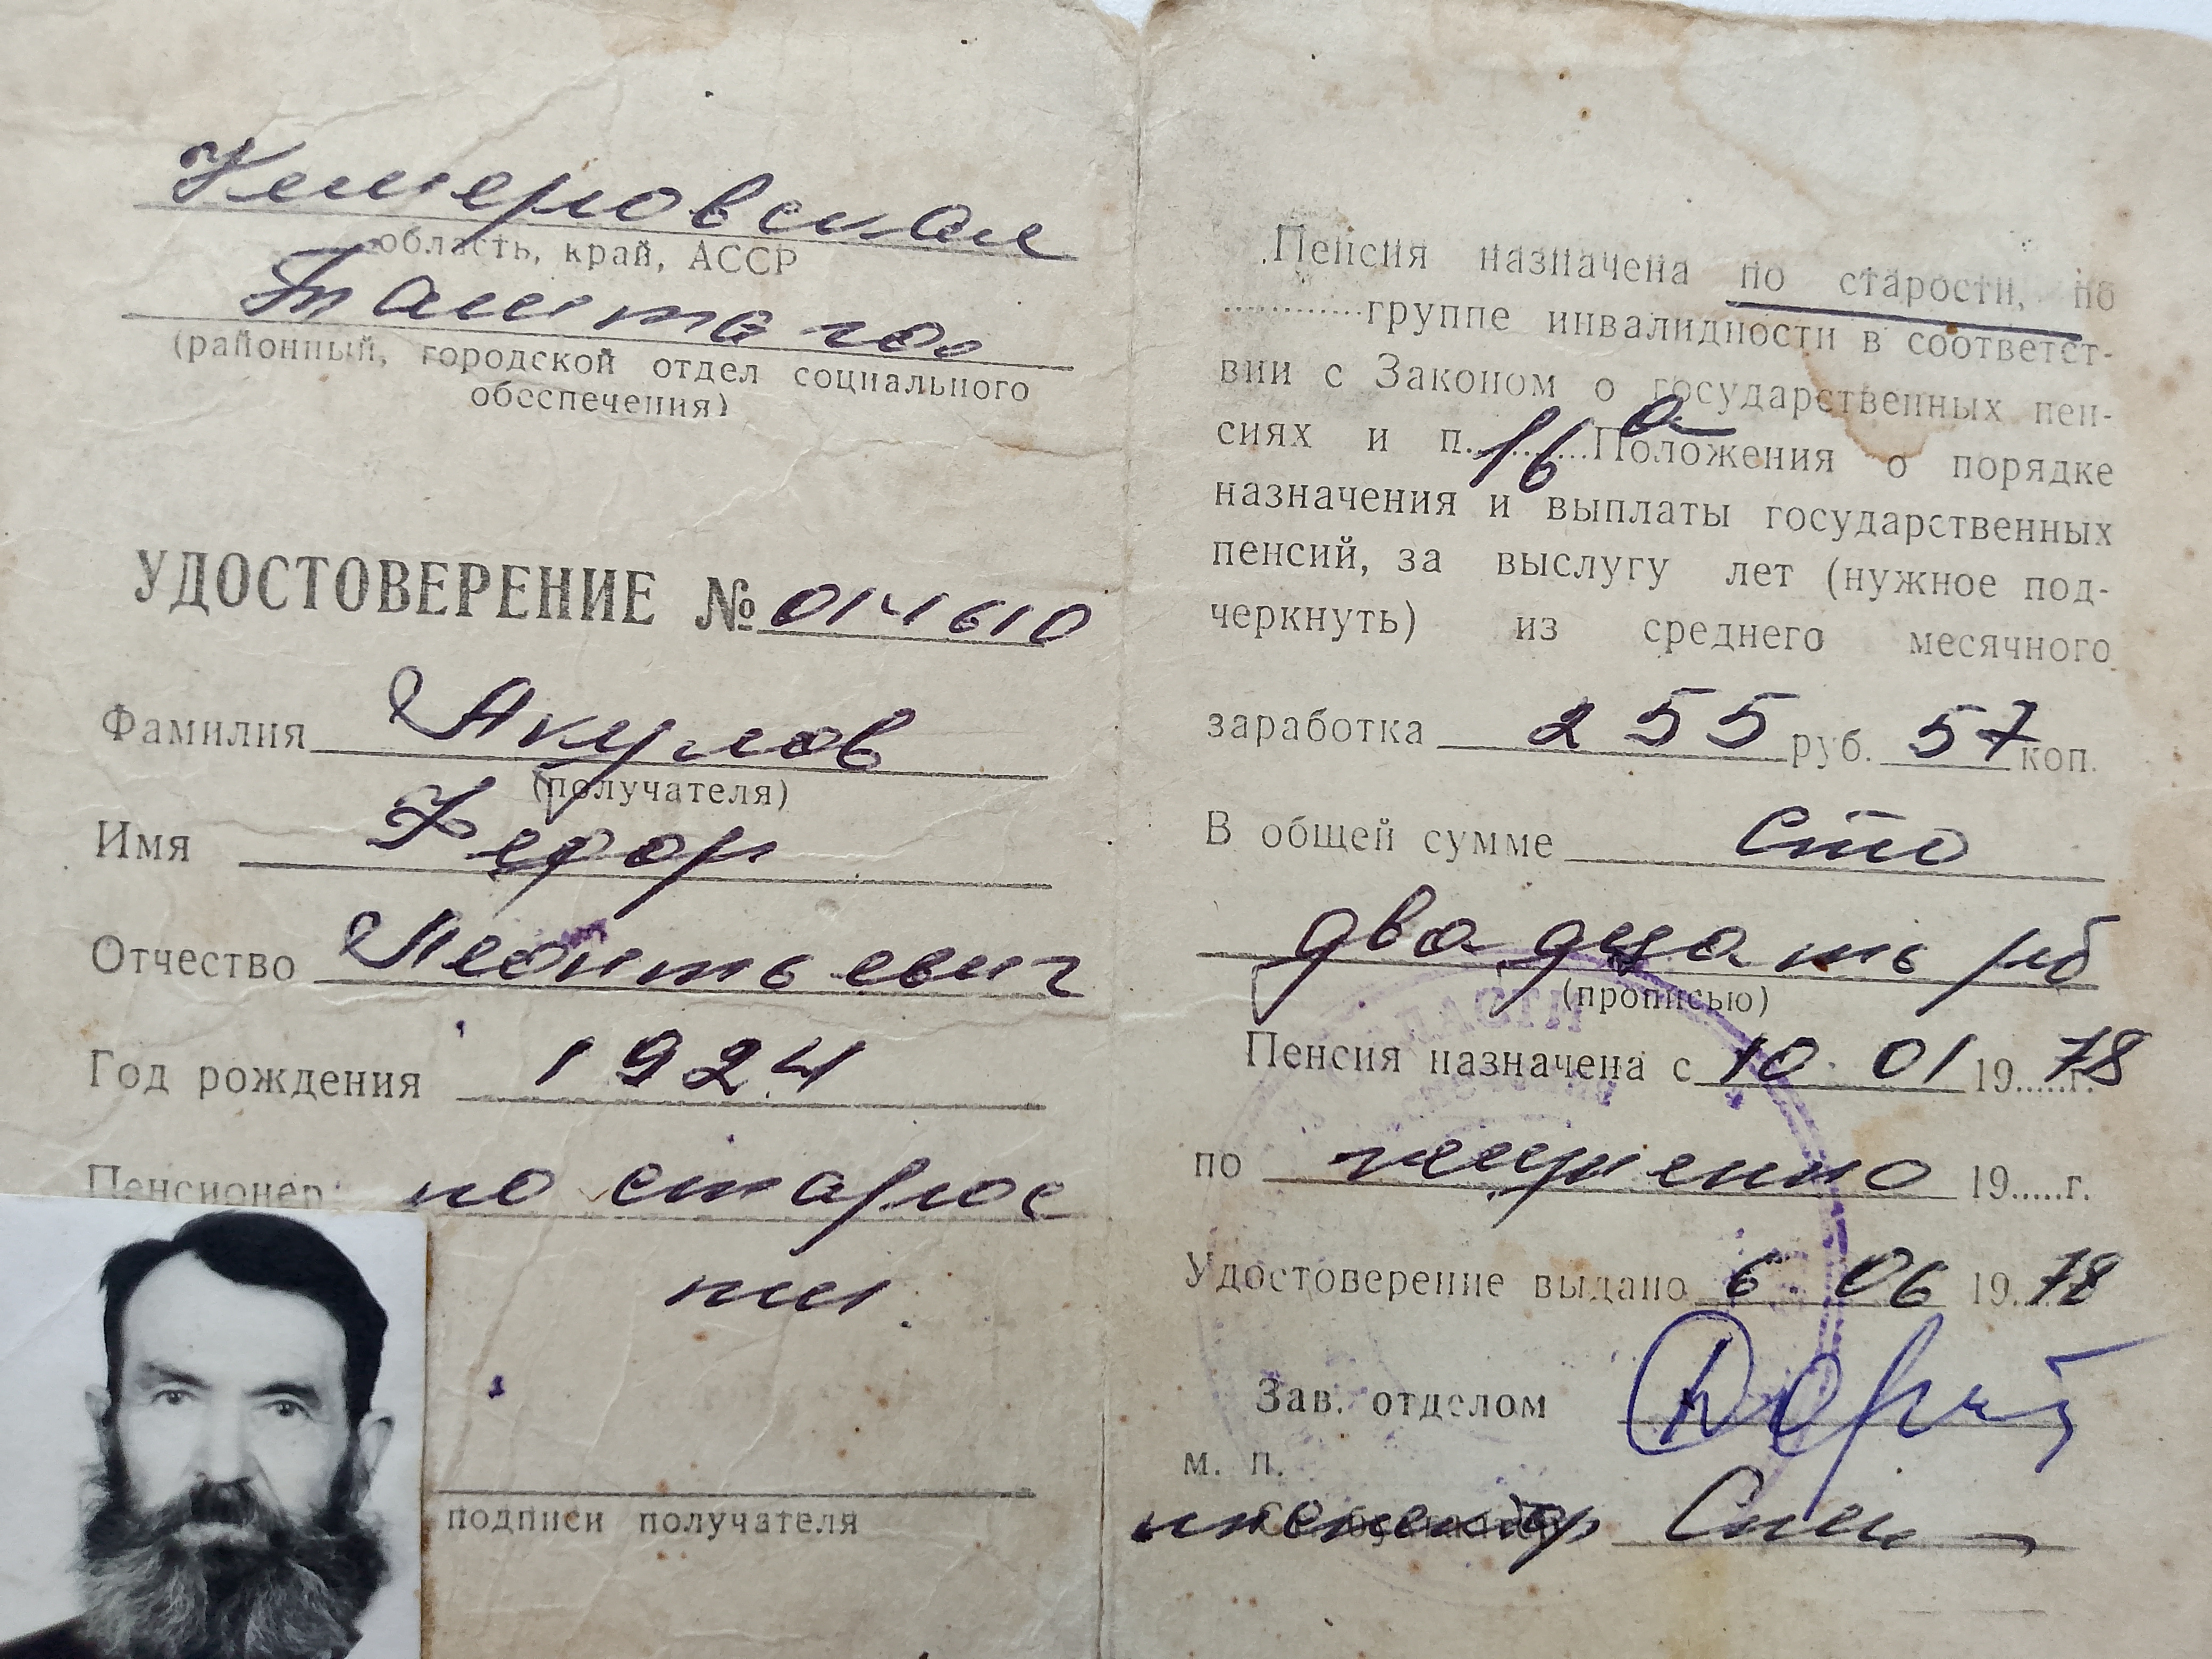 Кемеровская
область, край, АССР
Таштагол
(районный, городской отдел социального
обеспечения)
УДОСТОВЕРЕНИЕ № 014610
Фамилия Акулов
(получателя)
Имя Федор
Отчество Леонтьевич
Год рождения 1924
Пенсионер: по старос
ти
подписи получателя
Пенсия назначена по старости, по
............группе инвалидности в соответст-
вии с Законом о государственных пен-
сиях и п. 16 а Положения о порядке
назначения и выплаты государственных
пенсий, за выслугу лет (нужное под-
черкнуть) из среднего месячного
заработка 255 руб. 57 коп.
В общей сумме Сто
двадцать рб
(прописью)
Пенсия назначена с 10.01 1978 г.
по 19.....г.
Удостоверение выдано 6.06 1978
Зав. отделом
м. п.
инспектор